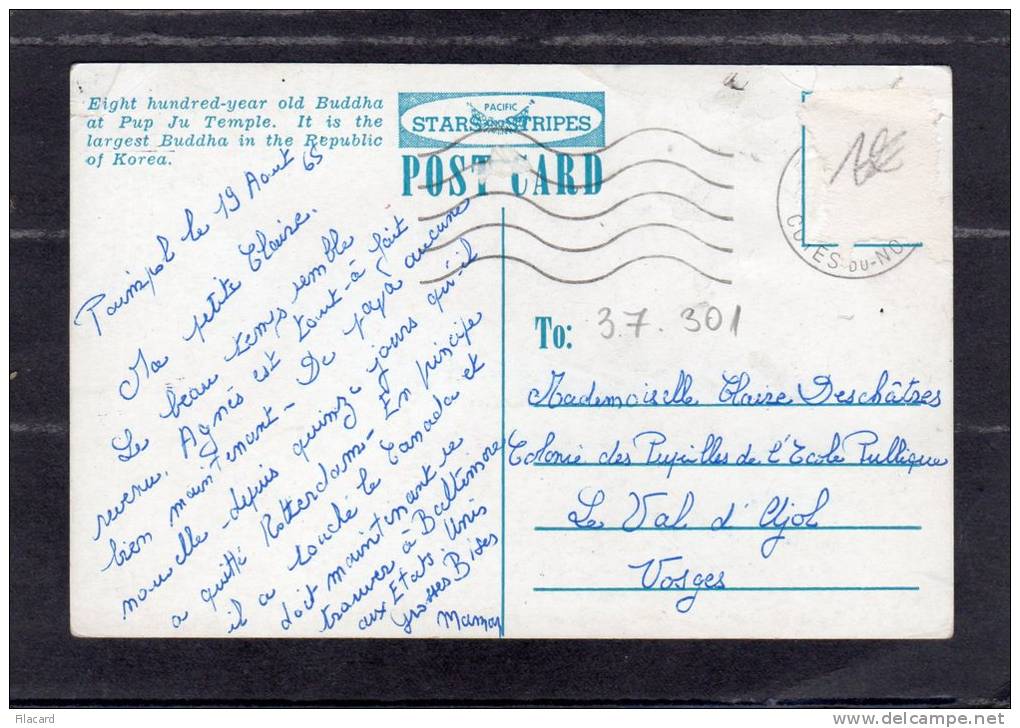 Eight hundred-year old Buddha
at Pup Ju Temple. It is the
largest Buddha in the Republic
of Korea.
PACIFIC
STARS AND STRIPES
POST CARD
16€
COTES-DU-NO
To:
37. 301
Paimpol le 19 Aout 65
Ma petite Claire.
Le beau temps semble
revenu. Agnès est tout-à fait
bien maintenant - De papa aucune
nouvelle - depuis quinze jours qu'il
a quitté Rotterdam - En principe
il a touché le Canada et
doit maintenant se
trouver à Baltimore
aux Etats Unis
Grosses Bises
Maman
Mademoiselle Claire Deschâtres
Colonie des Pupilles de l'Ecole Publique
Le Val d'Ajol
Vosges
Filacard
delcampe.net